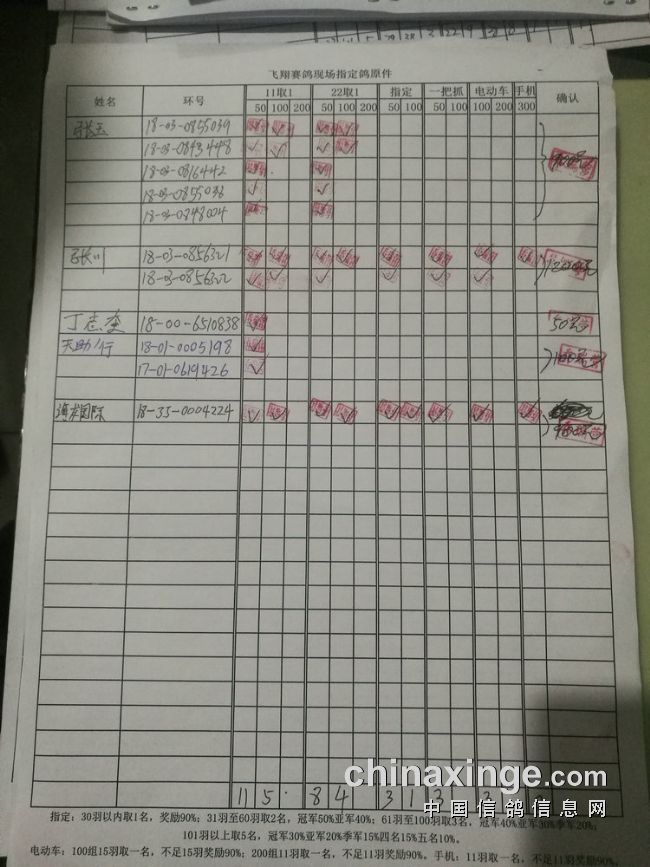 飞翔赛鸽现场指定鸽原件
姓名 环号 11取1 22取1 指定 一把抓 电动车 手机 确认
50 100 200 50 100 200 50 100 50 100 100 200 300
张玉 18-03-0855039
18-03-0843448
18-03-0816442
18-03-0855036
18-03-0848004
张川 18-03-0856321
18-03-0856322
丁志奎 18-00-6510838 50元
天助行 18-01-0005198
17-01-0619426
海龙国际 18-35-0004224
11 5 8 4 3 1
chinaxinge.com
中国信鸽信息网
指定：30羽以内取1名，奖励90%；31羽至60羽取2名，冠军50%亚军40%；61羽至100羽取3名，冠军40%亚军30%季军20%；
101羽以上取5名，冠军30%亚军20%季军15%四名15%五名10%。
电动车：100组15羽取一名，不足15羽奖励90%；200组11羽取一名，不足11羽奖励90%。手机：11羽取一名，不足11羽奖励90%。